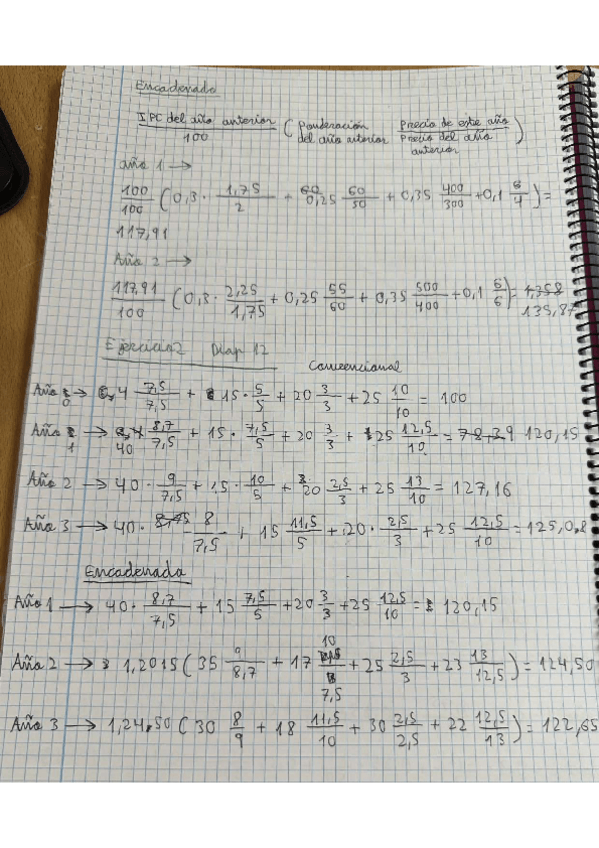 Encadenado
IPC del año anterior / 100 ( Ponderación del año anterior Precio de este año / Precio del año anterior )
año 1 →
100/100 ( 0,3 · 1,75/2 + 0,25 60/50 + 0,35 400/300 + 0,1 6/4 ) =
117,91
Año 2 →
117,91/100 ( 0,3 · 2,25/1,75 + 0,25 55/60 + 0,35 500/400 + 0,1 6/6 ) = 1,358
135,87
Ejercicio 2 Diap 12
Convencional
Año 0 → 4 7,5/7,5 + 15 · 5/5 + 20 3/3 + 25 10/10 = 100
Año 1 → 40 8,7/7,5 + 15 · 7,5/5 + 20 3/3 + 25 12,5/10 = 78,29 120,15
Año 2 → 40 · 9/7,5 + 15 · 10/5 + 20 2,5/3 + 25 13/10 = 127,16
Año 3 → 40 · 8,75 8/7,5 + 15 11,5/5 + 20 · 2,5/3 + 25 12,5/10 = 125,08
Encadenado
Año 1 → 40 · 8,7/7,5 + 15 7,5/5 + 20 3/3 + 25 12,5/10 = 120,15
Año 2 → 1,2015 ( 35 9/8,7 + 17 10/7,5 + 25 2,5/3 + 23 13/12,5 ) = 124,50
Año 3 → 1,24.50 ( 30 8/9 + 18 11,5/10 + 30 2,5/2,5 + 22 12,5/13 ) = 122,65